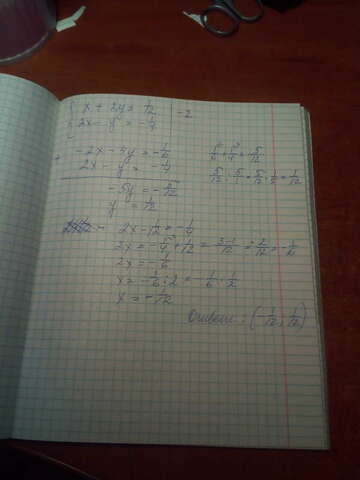 x + 2y = 1/12 | -2
2x - y = -1/4
+ -2x - 4y = -1/6
2x - y = -1/4
-5y = -5/12
y = 1/12
1/6 + 1/4 = 5/12
5/12 : 5/1 = 5/12 · 1/5 = 1/12
2x - 1/12 = -1/4
2x = -1/4 + 1/12 = -3+1/12 = -2/12 = -1/6
2x = -1/6
x = -1/6 : 2 = -1/6 · 1/2
x = -1/12
Ответ: (-1/12; 1/12)